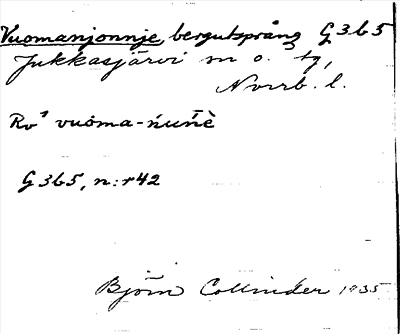 Vuomanjonnje, bergutsprång G 365
Jukkasjärvi sn o. tg,
Norrb. l.
Rv¹ vuōma-ńuńńè
G 365, n:r 42
Björn Collinder 1935